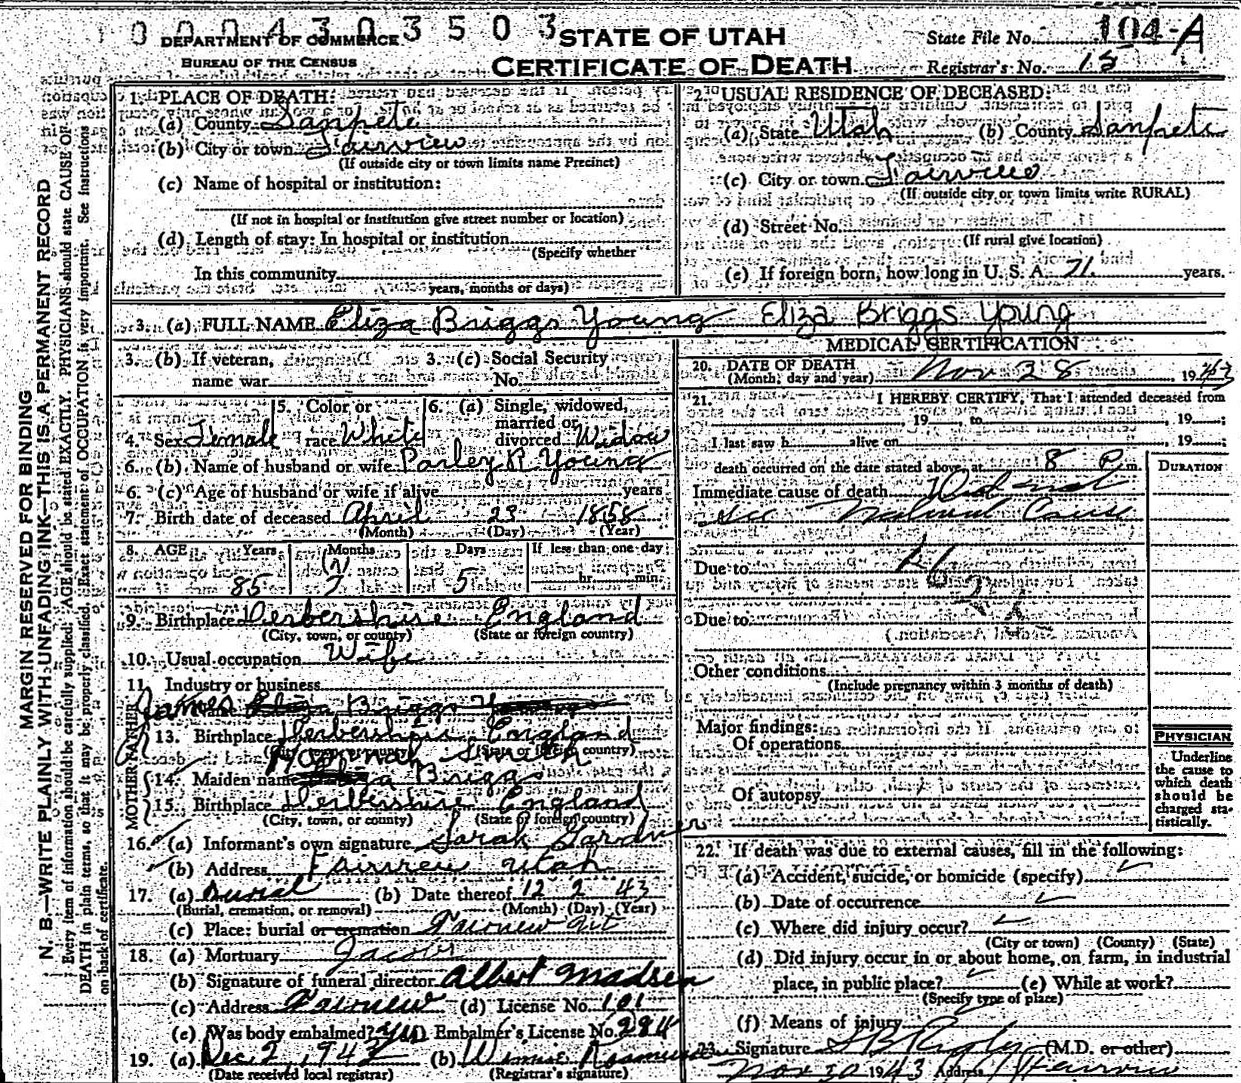 0 0 0 4 3 0 3 5 0 3
DEPARTMENT OF COMMERCE
BUREAU OF THE CENSUS
STATE OF UTAH
CERTIFICATE OF DEATH
State File No. 104-A
Registrar's No. 15
MARGIN RESERVED FOR BINDING
N. B.—WRITE PLAINLY WITH UNFADING INK—THIS IS A PERMANENT RECORD
Every item of information should be carefully supplied. AGE should be stated EXACTLY. PHYSICIANS should state CAUSE OF
DEATH in plain terms, so that it may be properly classified. Exact statement of OCCUPATION is very important. See instructions
on back of certificate.
1. PLACE OF DEATH:
(a) County Sanpete
(b) City or town Fairview
(If outside city or town limits name Precinct)
(c) Name of hospital or institution:
(If not in hospital or institution give street number or location)
(d) Length of stay: In hospital or institution
(Specify whether
In this community
years, months or days)
2. USUAL RESIDENCE OF DECEASED:
(a) State Utah (b) County Sanpete
(c) City or town Fairview
(If outside city or town limits write RURAL)
(d) Street No.
(If rural give location)
(e) If foreign born, how long in U. S. A. 71 years.
3. (a) FULL NAME Eliza Briggs Young Eliza Briggs Young
3. (b) If veteran, 3. (c) Social Security
name war No.
4. Sex Female 5. Color or race White 6. (a) Single, widowed, married or divorced Widow
6. (b) Name of husband or wife Parley R Young
6. (c) Age of husband or wife if alive years
7. Birth date of deceased April 23 1858
(Month) (Day) (Year)
8. AGE Years Months Days If less than one day
85 7 5 hr. min.
9. Birthplace Derbershire England
(City, town, or county) (State or foreign country)
10. Usual occupation Wife
11. Industry or business
FATHER
James Briggs
13. Birthplace Derbershire England
(City, town or county) (State or foreign country)
Hannah Smith
MOTHER
14. Maiden name Briggs
15. Birthplace Derbershire England
(City, town, or county) (State or foreign country)
16. (a) Informant's own signature Sarah Gardner
(b) Address Fairview Utah
17. (a) Burial (b) Date thereof 12 2 43
(Burial, cremation, or removal) (Month) (Day) (Year)
(c) Place: burial or cremation Fairview
18. (a) Mortuary Jacobs
(b) Signature of funeral director Albert Madsen
(c) Address Fairview (d) License No. 101
(e) Was body embalmed? yes Embalmer's License No. 284
19. (a) Dec. 2, 194 (b)
(Date received local registrar) (Registrar's signature)
MEDICAL CERTIFICATION
20. DATE OF DEATH
(Month, day and year) Nov 28, 1943
21. I HEREBY CERTIFY, That I attended deceased from
19 to , 19 ;
I last saw h alive on , 19 ;
death occurred on the date stated above, at 8 P m.
DURATION
Immediate cause of death Did not
see Natural Cause
Due to
Due to
Other conditions
(Include pregnancy within 3 months of death)
Major findings:
Of operations
Of autopsy
PHYSICIAN
Underline
the cause to
which death
should be
charged sta-
tistically.
22. If death was due to external causes, fill in the following:
(a) Accident, suicide, or homicide (specify)
(b) Date of occurrence
(c) Where did injury occur?
(City or town) (County) (State)
(d) Did injury occur in or about home, on farm, in industrial
place, in public place? (e) While at work?
(Specify type of place)
(f) Means of injury
23. Signature (M.D. or other)
Nov 30 1943 Address Fairview